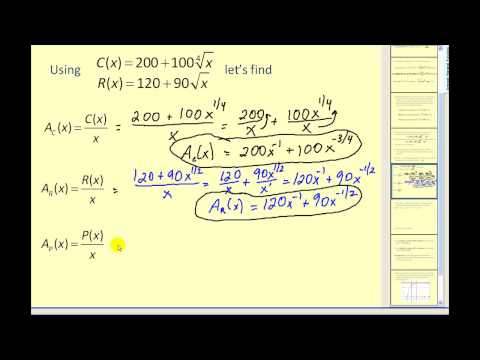 Using C(x) = 200 + 100∜x let's find
R(x) = 120 + 90√x
A_C(x) = C(x)/x = (200 + 100x^{1/4})/x = 200/x + 100x^{1/4}/x
A_C(x) = 200x^{-1} + 100x^{-3/4}
A_R(x) = R(x)/x = (120 + 90x^{1/2})/x = 120/x + 90x^{1/2}/x^1 = 120x^{-1} + 90x^{-1/2}
A_R(x) = 120x^{-1} + 90x^{-1/2}
A_P(x) = P(x)/x